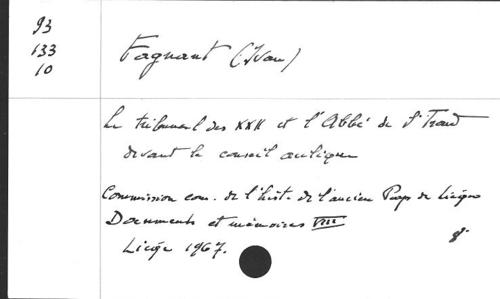 93
133
10
Fagnant (Ivan)
Le tribunal des XXII et l'Abbé de St Trond
devant le conseil aulique
Commission com. de l'hist. de l'ancien Pays de Liège
Documents et mémoires VIII
Liège 1967.
8°